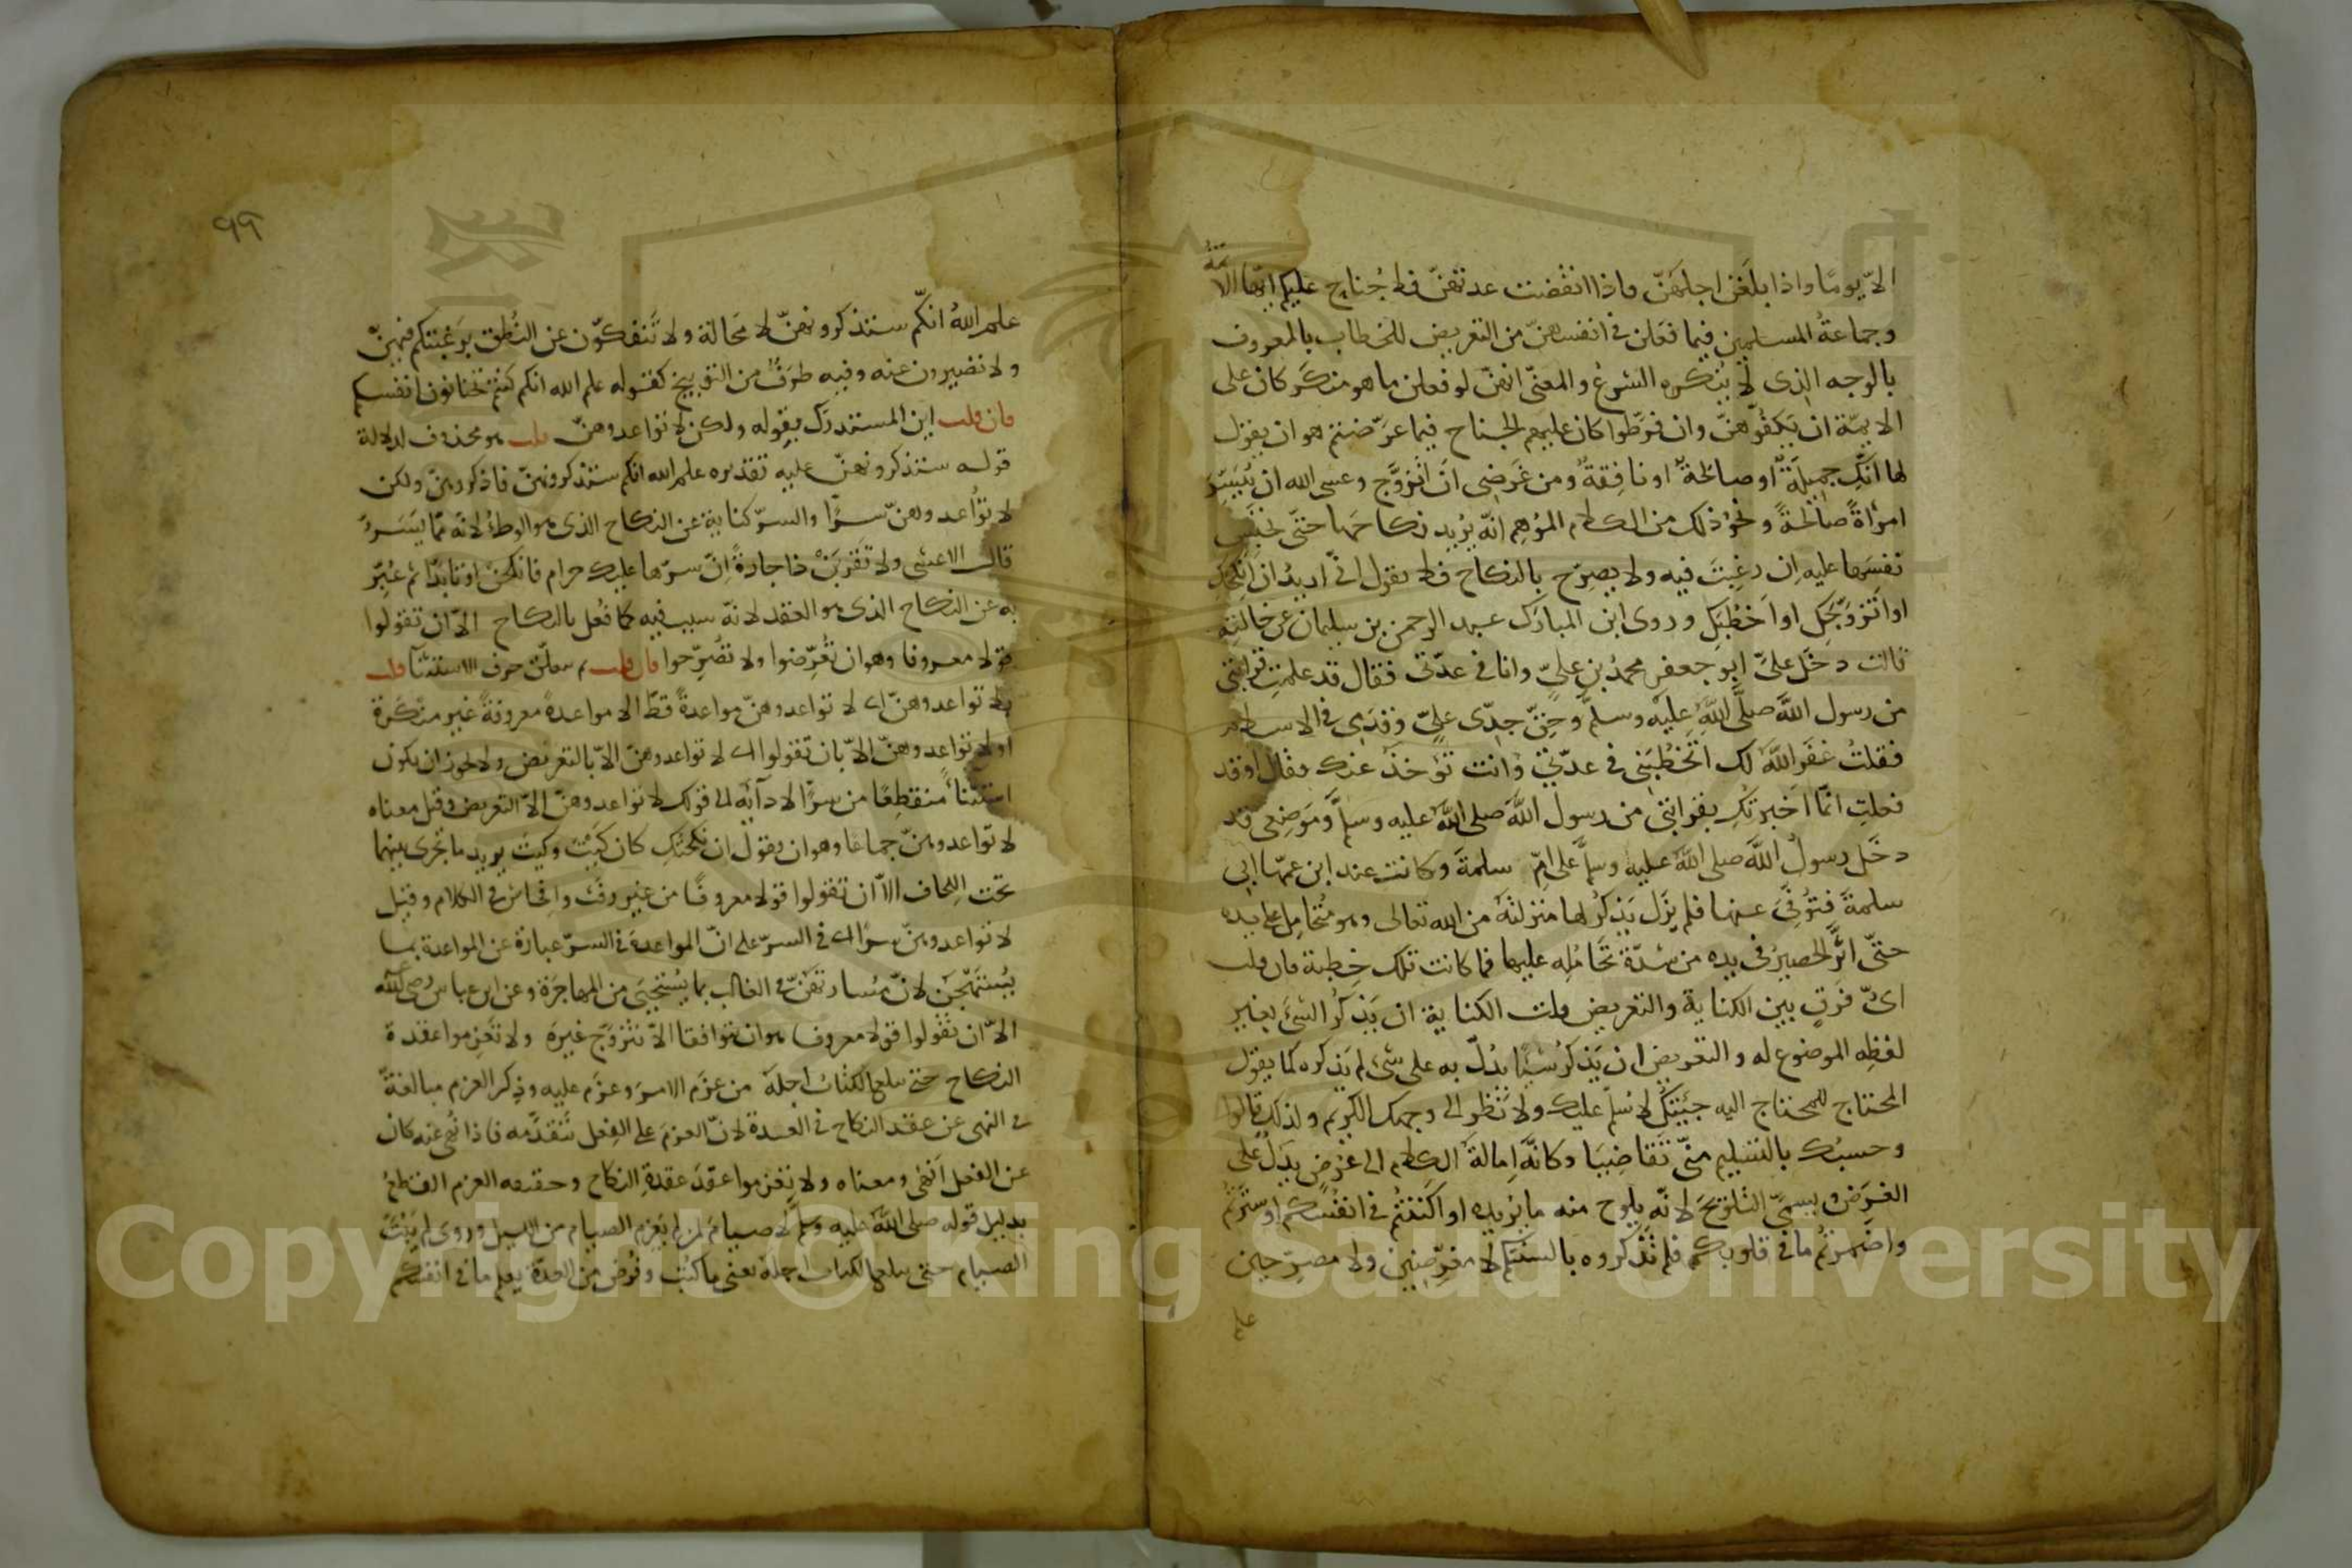 الا يوما واذا بلغن اجلهن فاذا انقضت عدتهن فلا جناح عليكم ايها الائمة
وجماعة المسلمين فيما فعلن في انفسهن من التعريض للخطاب بالمعروف
بالوجه الذى لا ينكره الشرع والمعنى انهن لو فعلن ما هو منكر كان على
الايمة ان يكفوهن وان فرطوا كان عليهم الجناح فيما عرضتم هو ان يقول
لها انك جميلة او صالحة او نافقة ومن غرضى ان اتزوج وعسى الله ان ييسر
امرأة صالحة ونحو ذلك من الكلام الموهم انه يريد نكاحها حتى تحبس
نفسها عليه ان رغبت فيه ولا يصرح بالنكاح فلا يقول انى اريد ان انكحك
او اتزوجك او اخطبك وروى ابن المبارك عبد الرحمن بن سليمان عن خالته
قالت دخل على ابو جعفر محمد بن على وانا في عدتى فقال قد علمت قرابتى
من رسول الله صلى الله عليه وسلم وحق جدى على وقدمى في الاسلام
فقلت غفر الله لك اتخطبنى في عدتى وانت تؤخذ عنك فقال اوقد
فعلت انما اخبرتك بقرابتى من رسول الله صلى الله عليه وسلم وموضعى قد
دخل رسول الله صلى الله عليه وسلم على ام سلمة وكانت عند ابن عمها ابى
سلمة فتوفى عنها فلم يزل يذكر لها منزلته من الله تعالى وهو متحامل على يده
حتى اثر الحصير في يده من شدة تحامله عليها فما كانت تلك خطبة فان قلت
اى فرق بين الكناية والتعريض قلت الكناية ان يذكر الشئ بغير
لفظه الموضوع له والتعريض ان يذكر شيئا يدل به على شئ لم يذكره كما يقول
المحتاج للمحتاج اليه جئتك لاسلم عليك ولانظر الى وجهك الكريم ولذلك قالوا
وحسبك بالتسليم منى تقاضيا وكانه امالة الكلام الى عرض يدل على
الغرض ويسمى التلويح لانه يلوح منه ما يريده او اكننتم في انفسكم او سترتم
واضمرتم ما في قلوبكم فلم تذكروه بالسنتكم لا معرضين ولا مصرحين
علم
٩٩
علم الله انكم ستذكرونهن لا محالة ولا تنفكون عن النطق برغبتكم فيهن
ولا تصبرون عنه وفيه طرف من التوبيخ كقوله علم الله انكم كنتم تختانون انفسكم
فان قلت اين المستدرك بقوله ولكن لا تواعدوهن قلت هو محذوف لدلالة
قوله ستذكرونهن عليه تقديره علم الله انكم ستذكرونهن فاذكروهن ولكن
لا تواعدوهن سرا والسر كناية عن النكاح الذى هو الوطئ لانه مما يسر
قال الاعشى ولا تقربن جارة ان سرها عليك حرام فانكحن او تابدا ثم عبر
به عن النكاح الذى هو العقد لانه سبب فيه كما فعل بالنكاح الا ان تقولوا
قولا معروفا وهو ان تعرضوا ولا تصرحوا فان قلت بم تعلق حرف الاستثنا قلت
بلا تواعدوهن اى لا تواعدوهن مواعدة قط الا مواعدة معروفة غير منكرة
او لا تواعدوهن الا بان تقولوا اى لا تواعدوهن الا بالتعريض ولا يجوز ان يكون
استثناء منقطعا من سرا لادآيه الى قولك لا تواعدوهن الا التعريض وقيل معناه
لا تواعدوهن جماعا وهو ان يقول ان نكحتك كان كيت وكيت يريد ما يجرى بينهما
تحت اللحاف الا ان تقولوا قولا معروفا من غير رفث وافحاش في الكلام وقيل
لا تواعدوهن سرا اى في السر على ان المواعدة في السر عبارة عن المواعدة بما
يستهجن لان مسارتهن في الغالب بما يستحيى من المهاجرة وعن ابن عباس رضى الله
الا ان تقولوا قولا معروفا هو ان يتواثقا الا تتزوج غيره ولا تعزموا عقدة
النكاح حتى يبلغ الكتاب اجله من عزم الامر وعزم عليه وذكر العزم مبالغة
في النهى عن عقد النكاح في العدة لان العزم على الفعل يتقدمه فاذا نهى عنه كان
عن الفعل انهى ومعناه ولا تعزموا عقد عقدة النكاح وحقيقه العزم القطع
بدليل قوله صلى الله عليه وسلم لا صيام لمن لم يعزم الصيام من الليل وروى لم يبت
الصيام حتى يبلغ الكتاب اجله يعنى ما كتب وفرض من العدة يعلم ما في انفسكم
Copyright © King Saud University